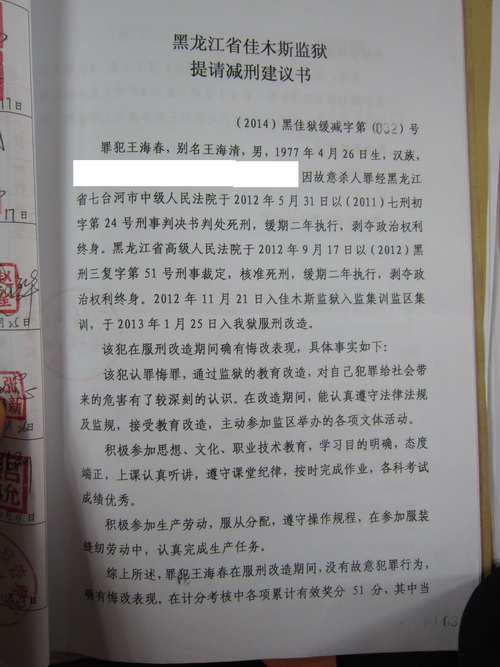 黑龙江省佳木斯监狱
提请减刑建议书
（2014）黑佳狱缓减字第（032）号
罪犯王海春，别名王海清，男，1977年4月26日生，汉族，
因故意杀人罪经黑龙江
省七台河市中级人民法院于2012年5月31日以(2011)七刑初
字第24号刑事判决书判处死刑，缓期二年执行，剥夺政治权利
终身。黑龙江省高级人民法院于2012年9月17日以(2012)黑
刑三复字第51号刑事裁定，核准死刑，缓期二年执行，剥夺政
治权利终身。2012年11月21日入佳木斯监狱入监集训监区集
训，于2013年1月25日入我狱服刑改造。
该犯在服刑改造期间确有悔改表现，具体事实如下：
该犯认罪悔罪，通过监狱的教育改造，对自己犯罪给社会带
来的危害有了较深刻的认识。在改造期间，能认真遵守法律法规
及监规，接受教育改造，主动参加监区举办的各项文体活动。
积极参加思想、文化、职业技术教育，学习目的明确，态度
端正，上课认真听讲，遵守课堂纪律，按时完成作业，各科考试
成绩优秀。
积极参加生产劳动，服从分配，遵守操作规程，在参加服装
缝纫劳动中，认真完成生产任务。
综上所述，罪犯王海春在服刑改造期间，没有故意犯罪行为，
确有悔改表现。在计分考核中各项累计有效奖分51分，其中当